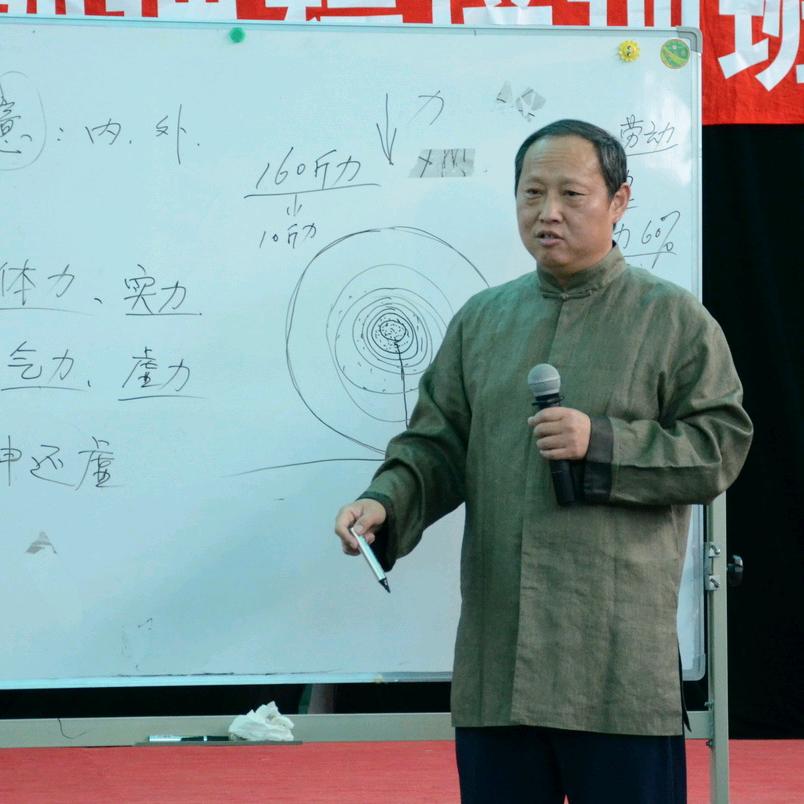 培训班
意：内、外.
力
160斤力
10斤力
劳动
力60%
体力、实力.
气力、虚力
神还虚